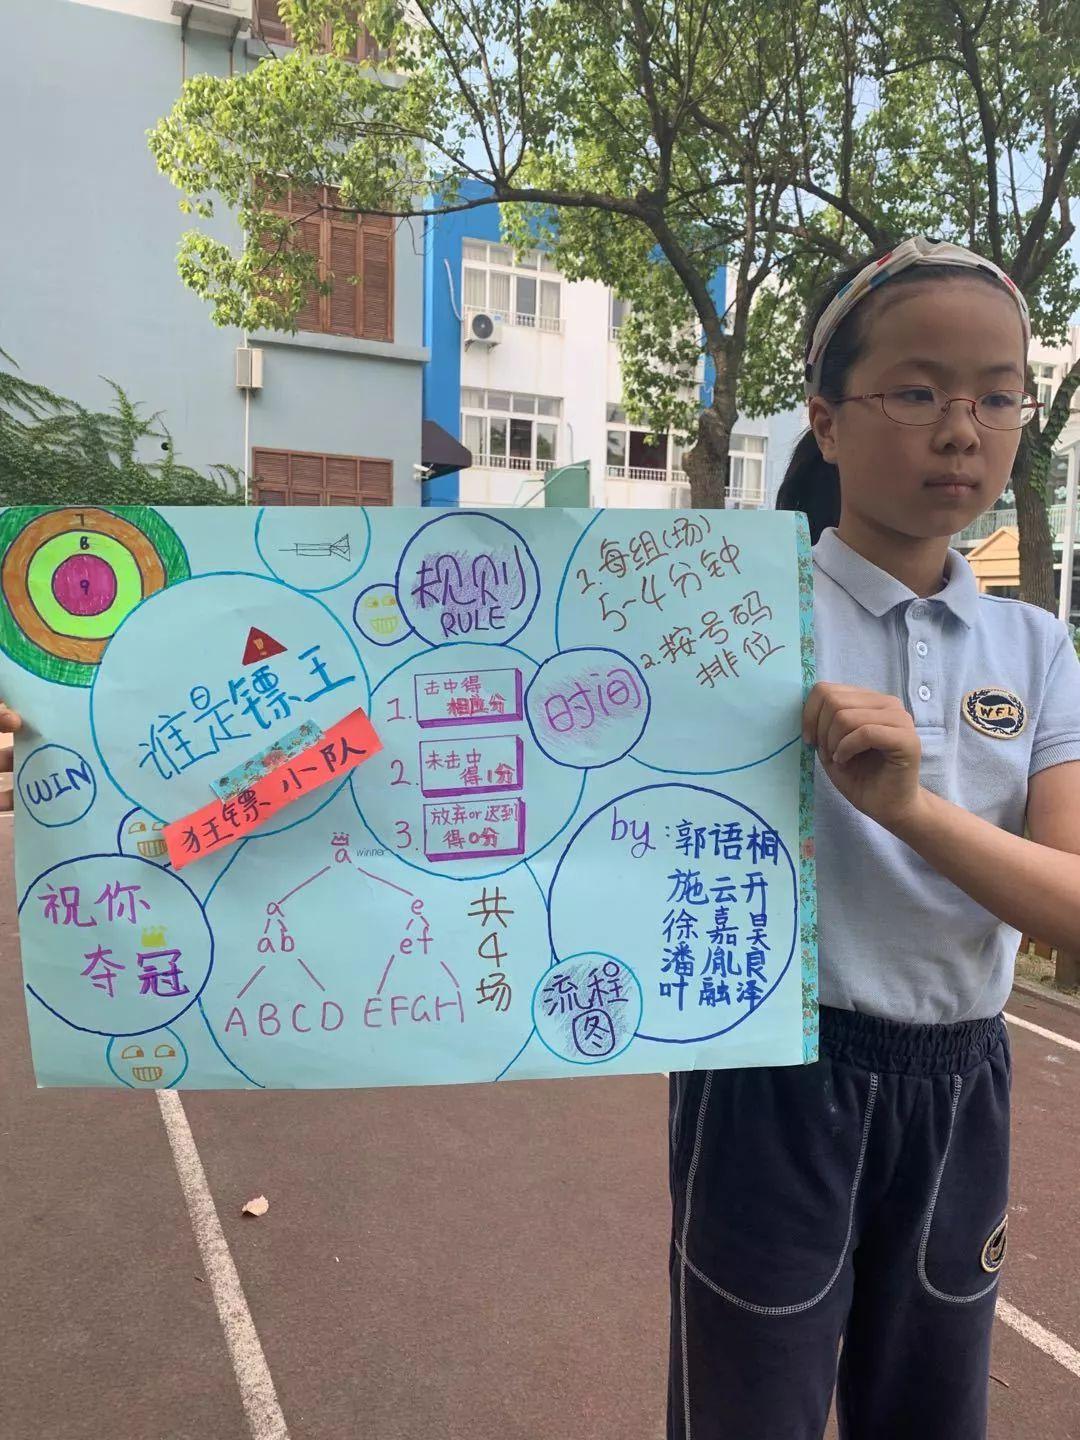 7
8
9
谁是镖王
狂镖小队
WIN
祝你
夺冠
规则
RULE
1. 击中得
相应分
2. 未击中
得1分
3. 放弃or迟到
得0分
时间
1. 每组(场)
5~4分钟
2. 按号码
排位
a winner
a e
ab ef
A B C D E F G H
共4场
流程
图
by:郭语桐
施云开
徐嘉昊
潘胤良
叶融泽
WFL